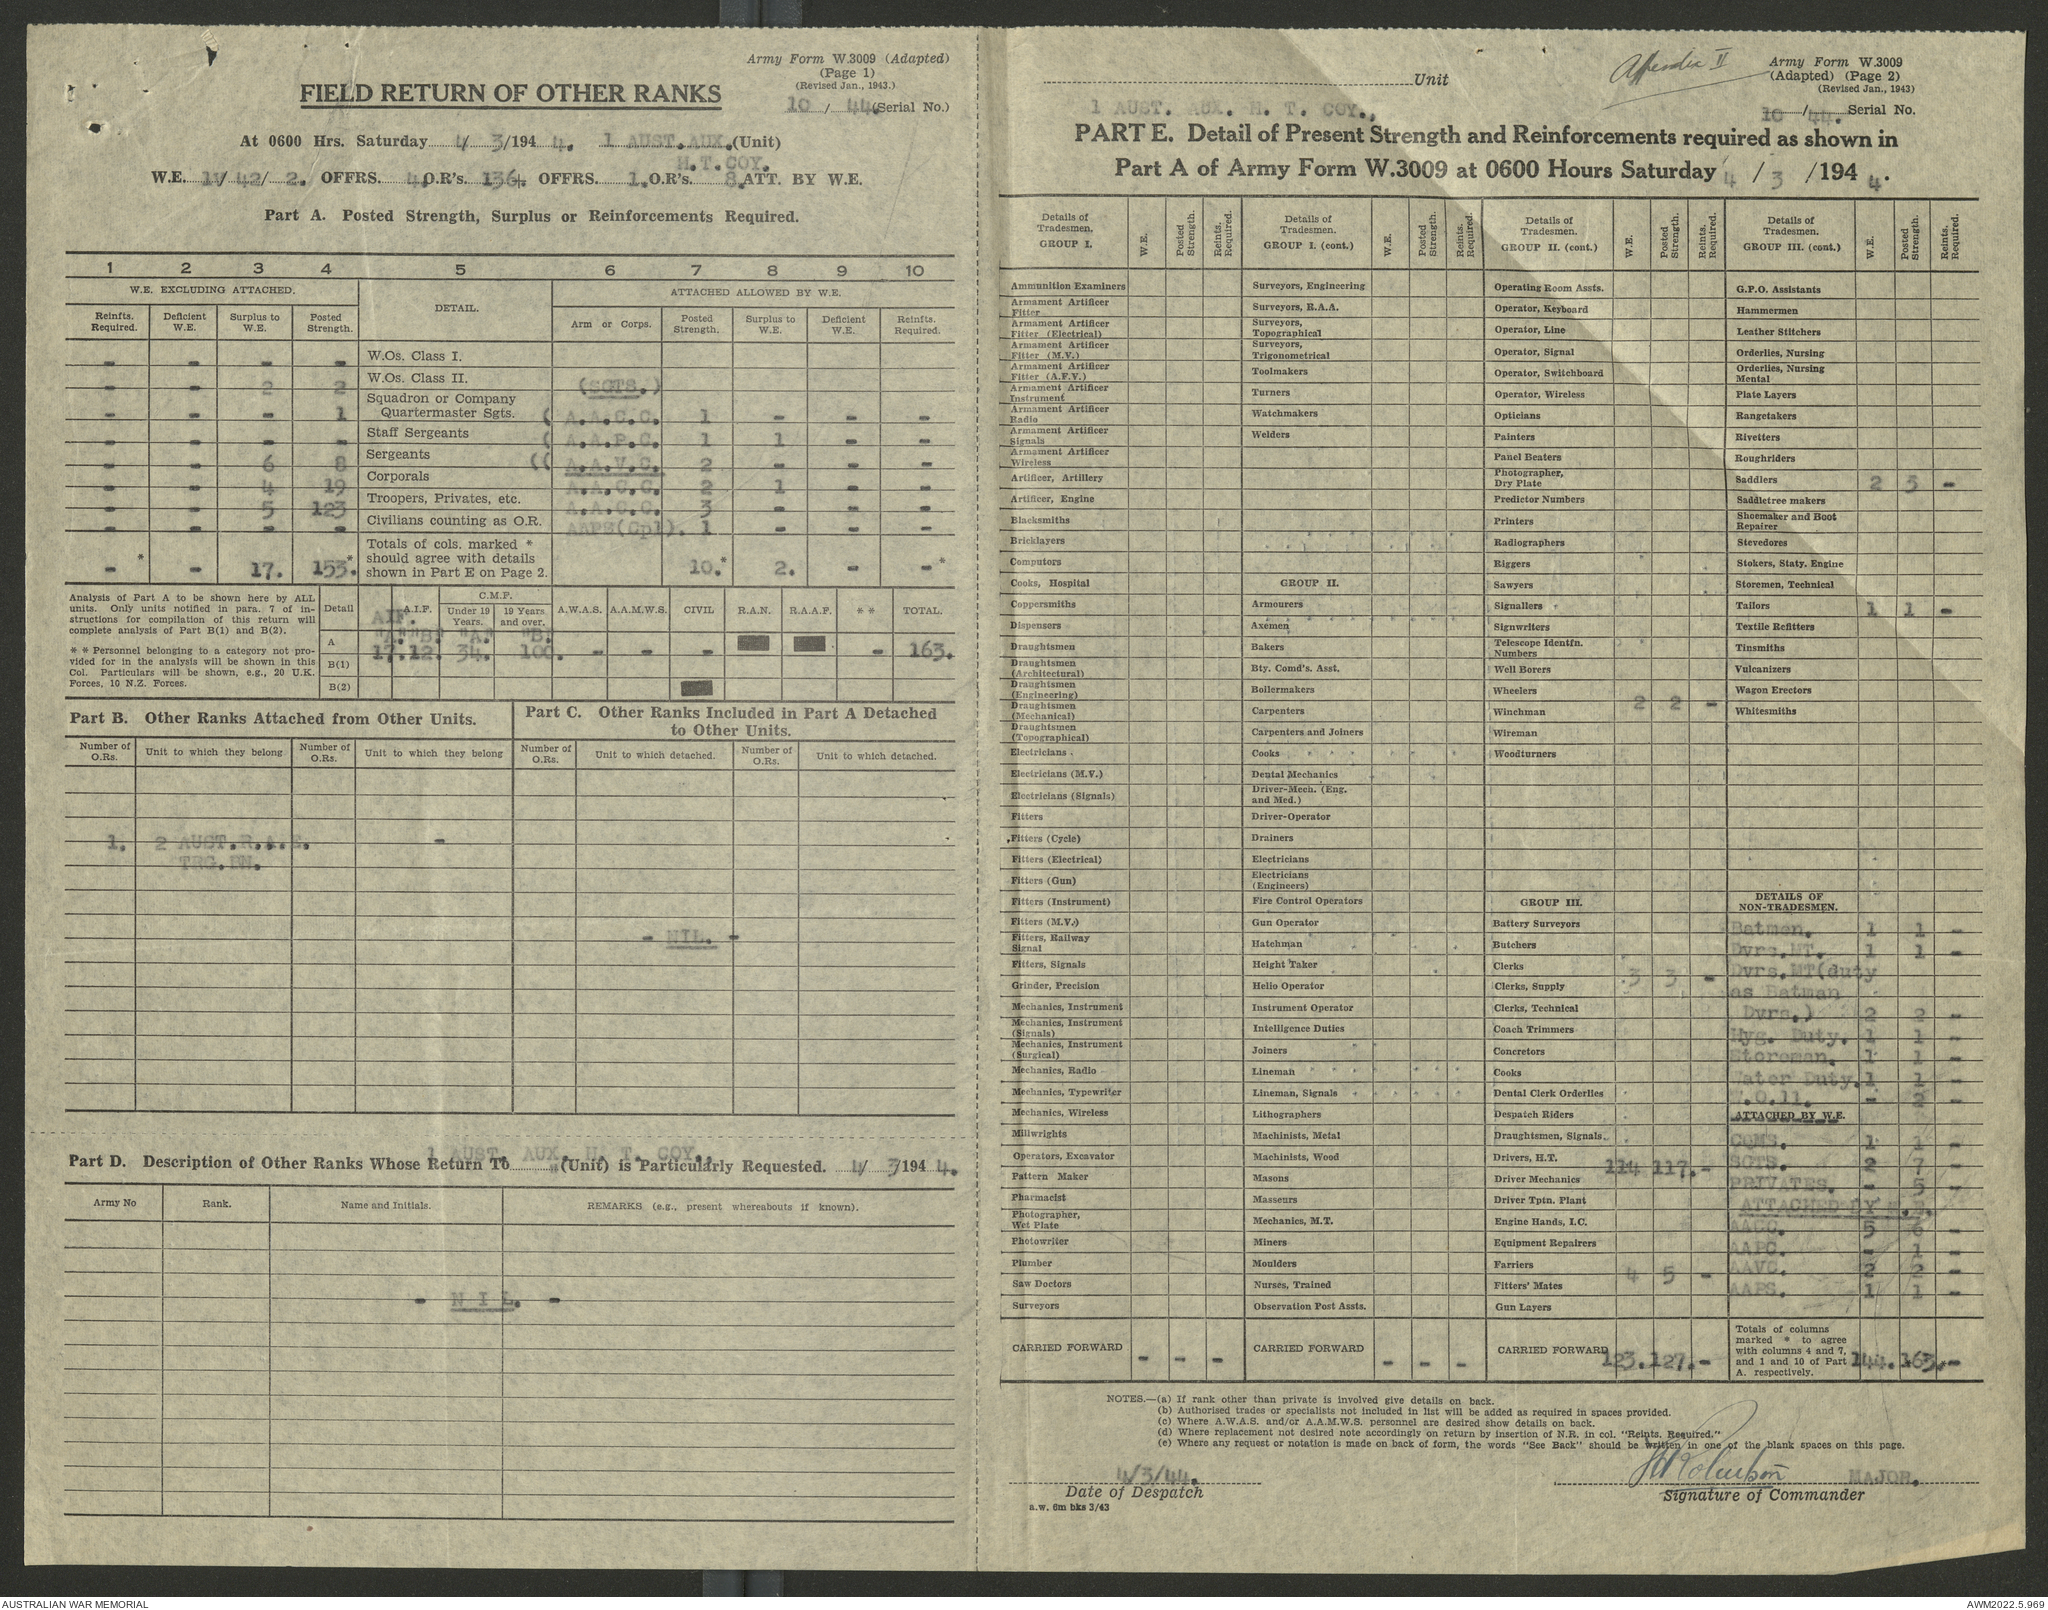 Army Form W.3009 (Adapted)
(Page 1)
(Revised Jan., 1943.)
FIELD RETURN OF OTHER RANKS
10 / 44. (Serial No.)
At 0600 Hrs. Saturday 4/ 3/194 4. 1 AUST.AUX. (Unit)
H.T.COY.
W.E. 11/ 42/ 2. OFFRS. 4. O.R's. 136+ OFFRS. 1. O.R's. 8. ATT. BY W.E.
Part A. Posted Strength, Surplus or Reinforcements Required.
1 2 3 4 5 6 7 8 9 10
W.E. EXCLUDING ATTACHED. DETAIL. ATTACHED ALLOWED BY W.E.
Reinfts. Required. Deficient W.E. Surplus to W.E. Posted Strength. Arm or Corps. Posted Strength. Surplus to W.E. Deficient W.E. Reinfts. Required.
- - - - W.Os. Class I.
- - 2 2 W.Os. Class II. (SGTS.)
- - - 1 Squadron or Company Quartermaster Sgts. ( A.A.C.C. 1 - - -
- - - - Staff Sergeants ( A.A.P.C. 1 1 - -
- - 6 8 Sergeants (( A.A.V.C. 2 - - -
- - 4 19 Corporals A.A.C.C. 2 1 - -
- - 5 123 Troopers, Privates, etc. A.A.C.C. 3 - - -
- - - - Civilians counting as O.R. AAPS(Cpl). 1 - - -
-* - 17. 153.* Totals of cols. marked * should agree with details shown in Part E on Page 2. 10.* 2. - -*
Analysis of Part A to be shown here by ALL
units. Only units notified in para. 7 of in-
structions for compilation of this return will
complete analysis of Part B(1) and B(2).
* * Personnel belonging to a category not pro-
vided for in the analysis will be shown in this
Col. Particulars will be shown, e.g., 20 U.K.
Forces, 10 N.Z. Forces.
Detail A.I.F. C.M.F. Under 19 Years. 19 Years and over. A.W.A.S. A.A.M.W.S. CIVIL R.A.N. R.A.A.F. * * TOTAL.
AIF.
"A." "B." "A." "B."
A 17. 12. 34. 100. - - - - 163.
B(1)
B(2)
Part B. Other Ranks Attached from Other Units.
Number of O.Rs. Unit to which they belong Number of O.Rs. Unit to which they belong
1. 2 AUST.R.A.E. -
TRG.BN.
Part C. Other Ranks Included in Part A Detached
to Other Units.
Number of O.Rs. Unit to which detached. Number of O.Rs. Unit to which detached.
- NIL. -
1 AUST. AUX. H. T. COY.,
Part D. Description of Other Ranks Whose Return To " (Unit) is Particularly Requested. 4/ 3/194 4.
Army No Rank. Name and Initials. REMARKS (e.g., present whereabouts if known).
- N I L. -
Unit
Appendix II
Army Form W.3009
(Adapted) (Page 2)
(Revised Jan., 1943)
1 AUST. AUX. H. T. COY.,
10 / 44. Serial No.
PART E. Detail of Present Strength and Reinforcements required as shown in
Part A of Army Form W.3009 at 0600 Hours Saturday 4 / 3 /194 4.
Details of Tradesmen. GROUP I. W.E. Posted Strength. Reints. Required.
Ammunition Examiners
Armament Artificer Fitter
Armament Artificer Fitter (Electrical)
Armament Artificer Fitter (M.V.)
Armament Artificer Fitter (A.F.V.)
Armament Artificer Instrument
Armament Artificer Radio
Armament Artificer Signals
Armament Artificer Wireless
Artificer, Artillery
Artificer, Engine
Blacksmiths
Bricklayers
Computors
Cooks, Hospital
Coppersmiths
Dispensers
Draughtsmen
Draughtsmen (Architectural)
Draughtsmen (Engineering)
Draughtsmen (Mechanical)
Draughtsmen (Topographical)
Electricians
Electricians (M.V.)
Electricians (Signals)
Fitters
Fitters (Cycle)
Fitters (Electrical)
Fitters (Gun)
Fitters (Instrument)
Fitters (M.V.)
Fitters, Railway Signal
Fitters, Signals
Grinder, Precision
Mechanics, Instrument
Mechanics, Instrument (Signals)
Mechanics, Instrument (Surgical)
Mechanics, Radio
Mechanics, Typewriter
Mechanics, Wireless
Millwrights
Operators, Excavator
Pattern Maker
Pharmacist
Photographer, Wet Plate
Photowriter
Plumber
Saw Doctors
Surveyors
CARRIED FORWARD - - -
Details of Tradesmen. GROUP I. (cont.) W.E. Posted Strength. Reints. Required.
Surveyors, Engineering
Surveyors, R.A.A.
Surveyors, Topographical
Surveyors, Trigonometrical
Toolmakers
Turners
Watchmakers
Welders
GROUP II.
Armourers
Axemen
Bakers
Bty. Comd's. Asst.
Boilermakers
Carpenters
Carpenters and Joiners
Cooks
Dental Mechanics
Driver-Mech. (Eng. and Med.)
Driver-Operator
Drainers
Electricians
Electricians (Engineers)
Fire Control Operators
Gun Operator
Hatchman
Height Taker
Helio Operator
Instrument Operator
Intelligence Duties
Joiners
Lineman
Lineman, Signals
Lithographers
Machinists, Metal
Machinists, Wood
Masons
Masseurs
Mechanics, M.T.
Miners
Moulders
Nurses, Trained
Observation Post Assts.
CARRIED FORWARD - - -
Details of Tradesmen. GROUP II. (cont.) W.E. Posted Strength. Reints. Required.
Operating Room Assts.
Operator, Keyboard
Operator, Line
Operator, Signal
Operator, Switchboard
Operator, Wireless
Opticians
Painters
Panel Beaters
Photographer, Dry Plate
Predictor Numbers
Printers
Radiographers
Riggers
Sawyers
Signallers
Signwriters
Telescope Identfn. Numbers
Well Borers
Wheelers 2 2 -
Winchman
Wireman
Woodturners
GROUP III.
Battery Surveyors
Butchers
Clerks 3 3 -
Clerks, Supply
Clerks, Technical
Coach Trimmers
Concretors
Cooks
Dental Clerk Orderlies
Despatch Riders
Draughtsmen, Signals.
Drivers, H.T. 114 117. -
Driver Mechanics
Driver Tptn. Plant
Engine Hands, I.C.
Equipment Repairers
Farriers 4 5 -
Fitters' Mates
Gun Layers
CARRIED FORWARD 123. 127. -
Details of Tradesmen. GROUP III. (cont.) W.E. Posted Strength. Reints. Required.
G.P.O. Assistants
Hammermen
Leather Stitchers
Orderlies, Nursing
Orderlies, Nursing Mental
Plate Layers
Rangetakers
Rivetters
Roughriders
Saddlers 2 3 -
Saddletree makers
Shoemaker and Boot Repairer
Stevedores
Stokers, Staty. Engine
Storemen, Technical
Tailors 1 1 -
Textile Refitters
Tinsmiths
Vulcanizers
Wagon Erectors
Whitesmiths
DETAILS OF NON-TRADESMEN.
Batmen. 1 1 -
Dvrs.MT. 1 1 -
Dvrs.MT(duty
as Batman
Dvrs.) 2 2 -
Hyg. Duty. 1 1 -
Storeman. 1 1 -
Water Duty. 1 1 -
W.O.11. - 2 -
ATTACHED BY W.E.
CQMS. 1 1 -
SGTS. 2 7 -
PRIVATES. - 5 -
ATTACHED BY W.E.
AACC. 5 6 -
AAPC. - 1 -
AAVC. 2 2 -
AAPS. 1 1 -
Totals of columns marked * to agree with columns 4 and 7, and 1 and 10 of Part A. respectively. 144. 163.* -
NOTES.—(a) If rank other than private is involved give details on back.
(b) Authorised trades or specialists not included in list will be added as required in spaces provided.
(c) Where A.W.A.S. and/or A.A.M.W.S. personnel are desired show details on back.
(d) Where replacement not desired note accordingly on return by insertion of N.R. in col. "Reints. Required."
(e) Where any request or notation is made on back of form, the words "See Back" should be written in one of the blank spaces on this page.
4/3/44.
Date of Despatch
a.w. 6m bks 3/43
Robertson MAJOR.
Signature of Commander
AUSTRALIAN WAR MEMORIAL
AWM2022.5.969